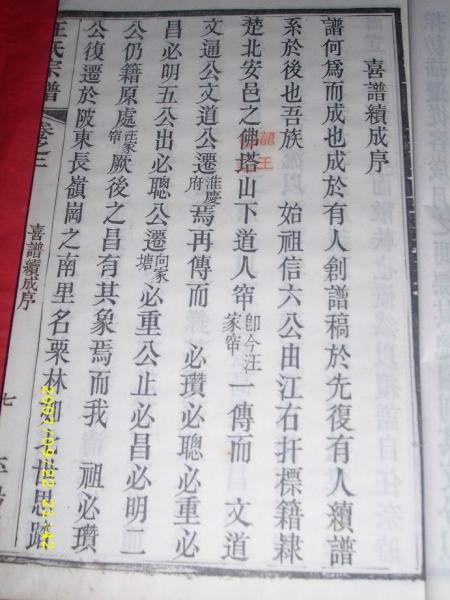 喜譜續成序
譜何為而成也成於有人創譜稿於先復有人續譜
系於後也吾族 始祖信六公由江右扞標籍隸
楚北安邑之佛塔山下道人窜即今汪家窜一傳而 文道
文通公文道公遷淮慶府焉再傳而 必瓚必聰必重必
昌必明五公出必聰公遷向家塘必重公止必昌必明二
公仍籍原處汪家窜厥後之昌有其象焉而我 祖必瓚
公復遷於陂東長嶺崗之南里名栗林
氏宗譜
卷之
喜譜續成序
七